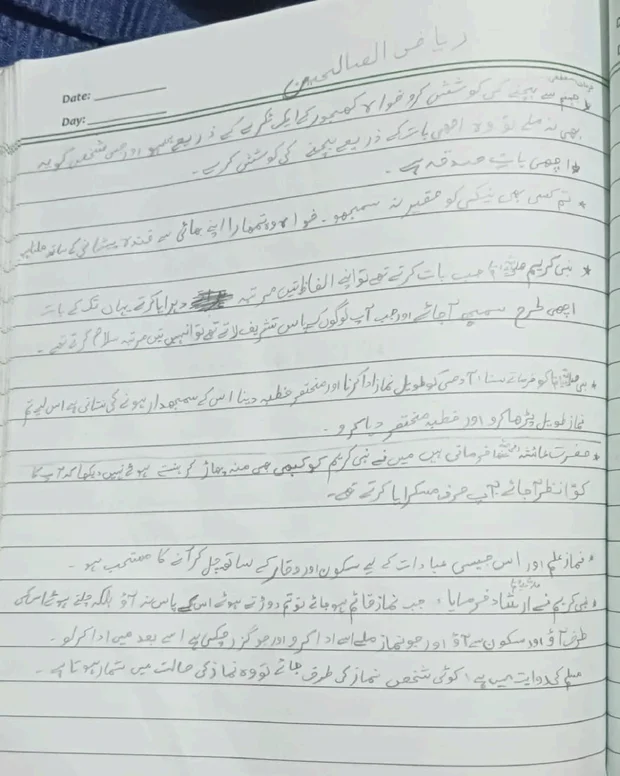 ریاض الصالحین
Date:
Day:
جہنم سے بچنے کی کوشش کرو خواہ کھجور کے ایک ٹکڑے کے ذریعے ہو اور جس شخص کو یہ
بھی نہ ملے تو وہ اچھی بات کے ذریعے بچنے کی کوشش کرے۔
* اچھی بات صدقہ ہے۔
* تم کسی بھی نیکی کو حقیر نہ سمجھو۔ خواہ وہ تمہارا اپنے بھائی سے خندہ پیشانی کے ساتھ ملنا ہو
* نبی کریم ﷺ جب بات کرتے تھے تو اپنے الفاظ تین مرتبہ دہرایا کرتے یہاں تک کے بات
اچھی طرح سمجھ آجائے اور جب آپ لوگوں کے پاس تشریف لاتے تھے تو انہیں تین مرتبہ سلام کرتے تھے۔
* نبی ﷺ کو فرماتے سنا: آدمی کو طویل نماز ادا کرنا اور مختصر خطبہ دینا اس کے سمجھدار ہونے کی نشانی ہے اس لیے تم
نماز طویل پڑھا کرو اور خطبہ مختصر دیا کرو۔
* حضرت عائشہ فرماتی ہیں میں نے نبی کریم کو کبھی بھی منہ پھاڑ کر ہنستے ہوئے نہیں دیکھا کہ آپ کا
کوّا نظر آجائے آپ صرف مسکرایا کرتے تھے۔
* نماز علم اور اس جیسی عبادات کے لیے سکون اور وقار کے ساتھ چل کر آنے کا مستحب ہو۔
* نبی کریم ﷺ نے ارشاد فرمایا: جب نماز قائم ہو جائے تو تم دوڑتے ہوئے اس کے پاس نہ آؤ بلکہ چلتے ہوئے اس کی
طرف آؤ اور سکون سے آؤ اور جو نماز ملے اسے ادا کرو اور جو گزر چکی ہے اسے بعد میں ادا کر لو۔
مسلم کی روایت میں ہے: کوئی شخص نماز کی طرف جائے تو وہ نماز کی حالت میں شمار ہوتا ہے۔